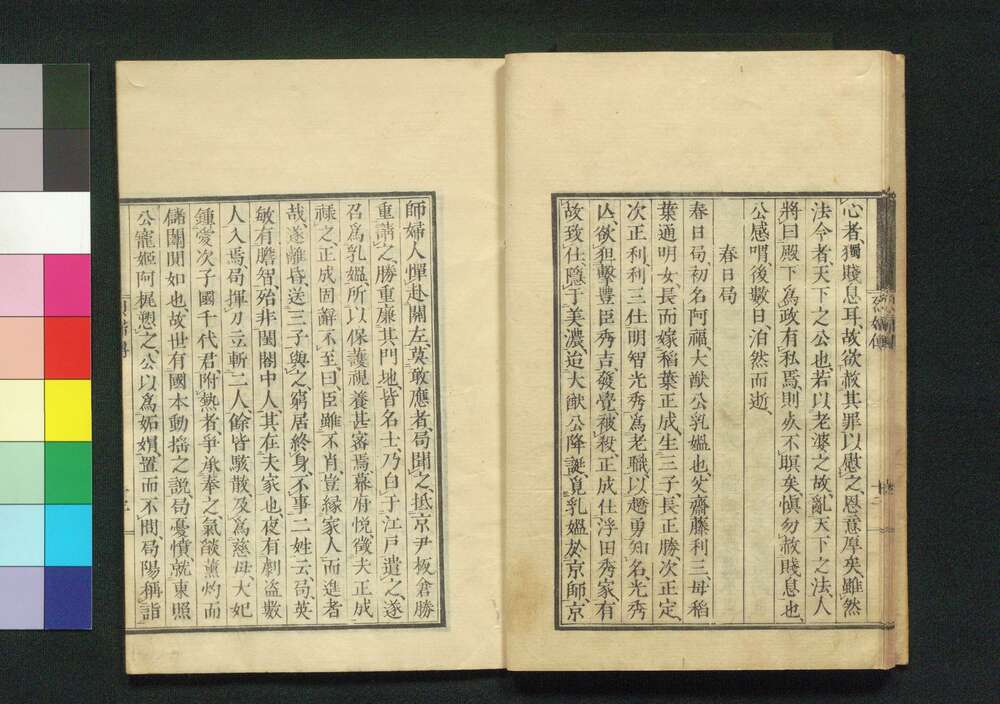 心者獨賤息耳、故欲赦其罪以慰之、恩意厚矣、雖然
法令者、天下之公也、若以老婆之故、亂天下之法、人
將曰、殿下爲政、有私焉、則妾不瞑矣、愼勿赦賤息也、
公感喟、後數日、泊然而逝、
春日局
春日局、初名阿福、大猷公乳媼也、父齋藤利三、母稻
葉通明女、長而嫁稻葉正成、生三子、長正勝、次正定、
次正利、利三仕明智光秀爲老職、以趫勇知名、光秀
亾、欲狙擊豐臣秀吉、發覺被殺、正成仕浮田秀家、有
故致仕、隱于美濃、迨大猷公降誕、覓乳媼於京師、京
師婦人憚赴關左、莫敢應者、局聞之、抵京尹板倉勝
重請之、勝重廉其門地、皆名士、乃白于江戸、遣之、遂
召爲乳媼、所以保護視養甚審焉、幕府悅、徵夫正成
祿之、正成固辭不至、曰、臣雖不肖、豈緣家人而進者
哉、遂離昏、送三子與之、窮居終身、不事二姓云、局英
敏有膽智、殆非閨閤中人、其在夫家也、夜有劇盜數
人入焉、局揮刀立斬二人、餘皆駭散、及爲慈母、大妃
鍾愛次子國千代君、附熱者爭承奉之、氣燄薰灼、而
儲闈闃如也、故世有國本動搖之說、局憂憤、就東照
公寵姬阿梶愬之、公以爲妬媢、置而不問、局陽稱詣
十二